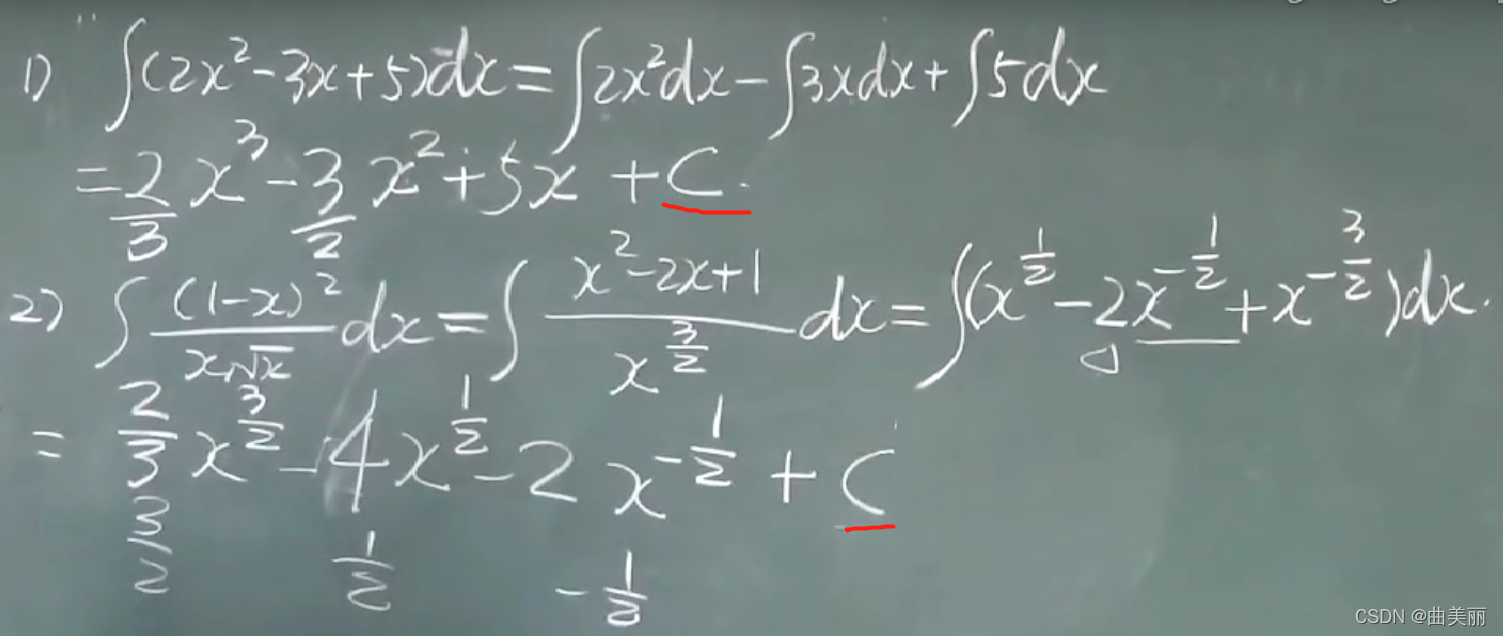 1) ∫(2x²-3x+5)dx=∫2x²dx-∫3xdx+∫5dx
=2/3 x³-3/2 x²+5x+C.
2) ∫(1-x)²/(x√x) dx=∫(x²-2x+1)/x^(3/2) dx=∫(x^(1/2)-2x^(-1/2)+x^(-3/2))dx.
= 2/3 x^(3/2)-4x^(1/2)-2x^(-1/2)+C
3/2 1/2 -1/2
CSDN @曲美丽